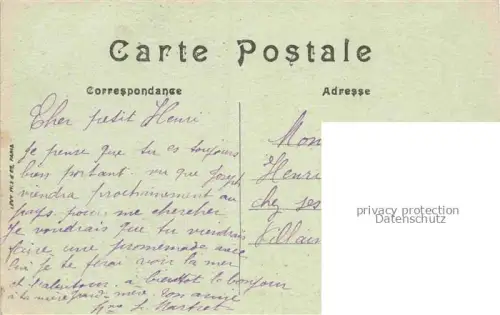 Carte Postale
Correspondance
Adresse
Cher petit Henri
Je pense que tu es toujours
bien portant. vu que Joseph
viendra prochainement au
pays pour me chercher
Je voudrais que tu viendrais
faire une promenade avec
lui je te ferai voir la mer
et l'alentour. a bientot le bonjour
a ta mere grand-mere. ton amie
L.
Mon
Henri
chez ses
Villain
privacy protection
Datenschutz